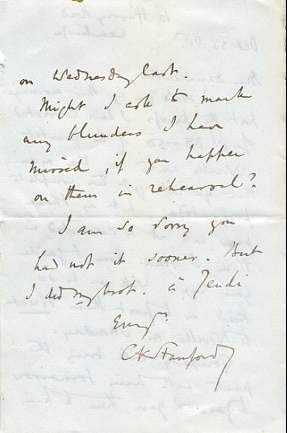 on Wednesday last.
Might I ask to mark
any blunders I have
missed, if you happen
on them in rehearsal?
I am so sorry you
had not it sooner. But
I did my best. à Jeudi
CVStanford